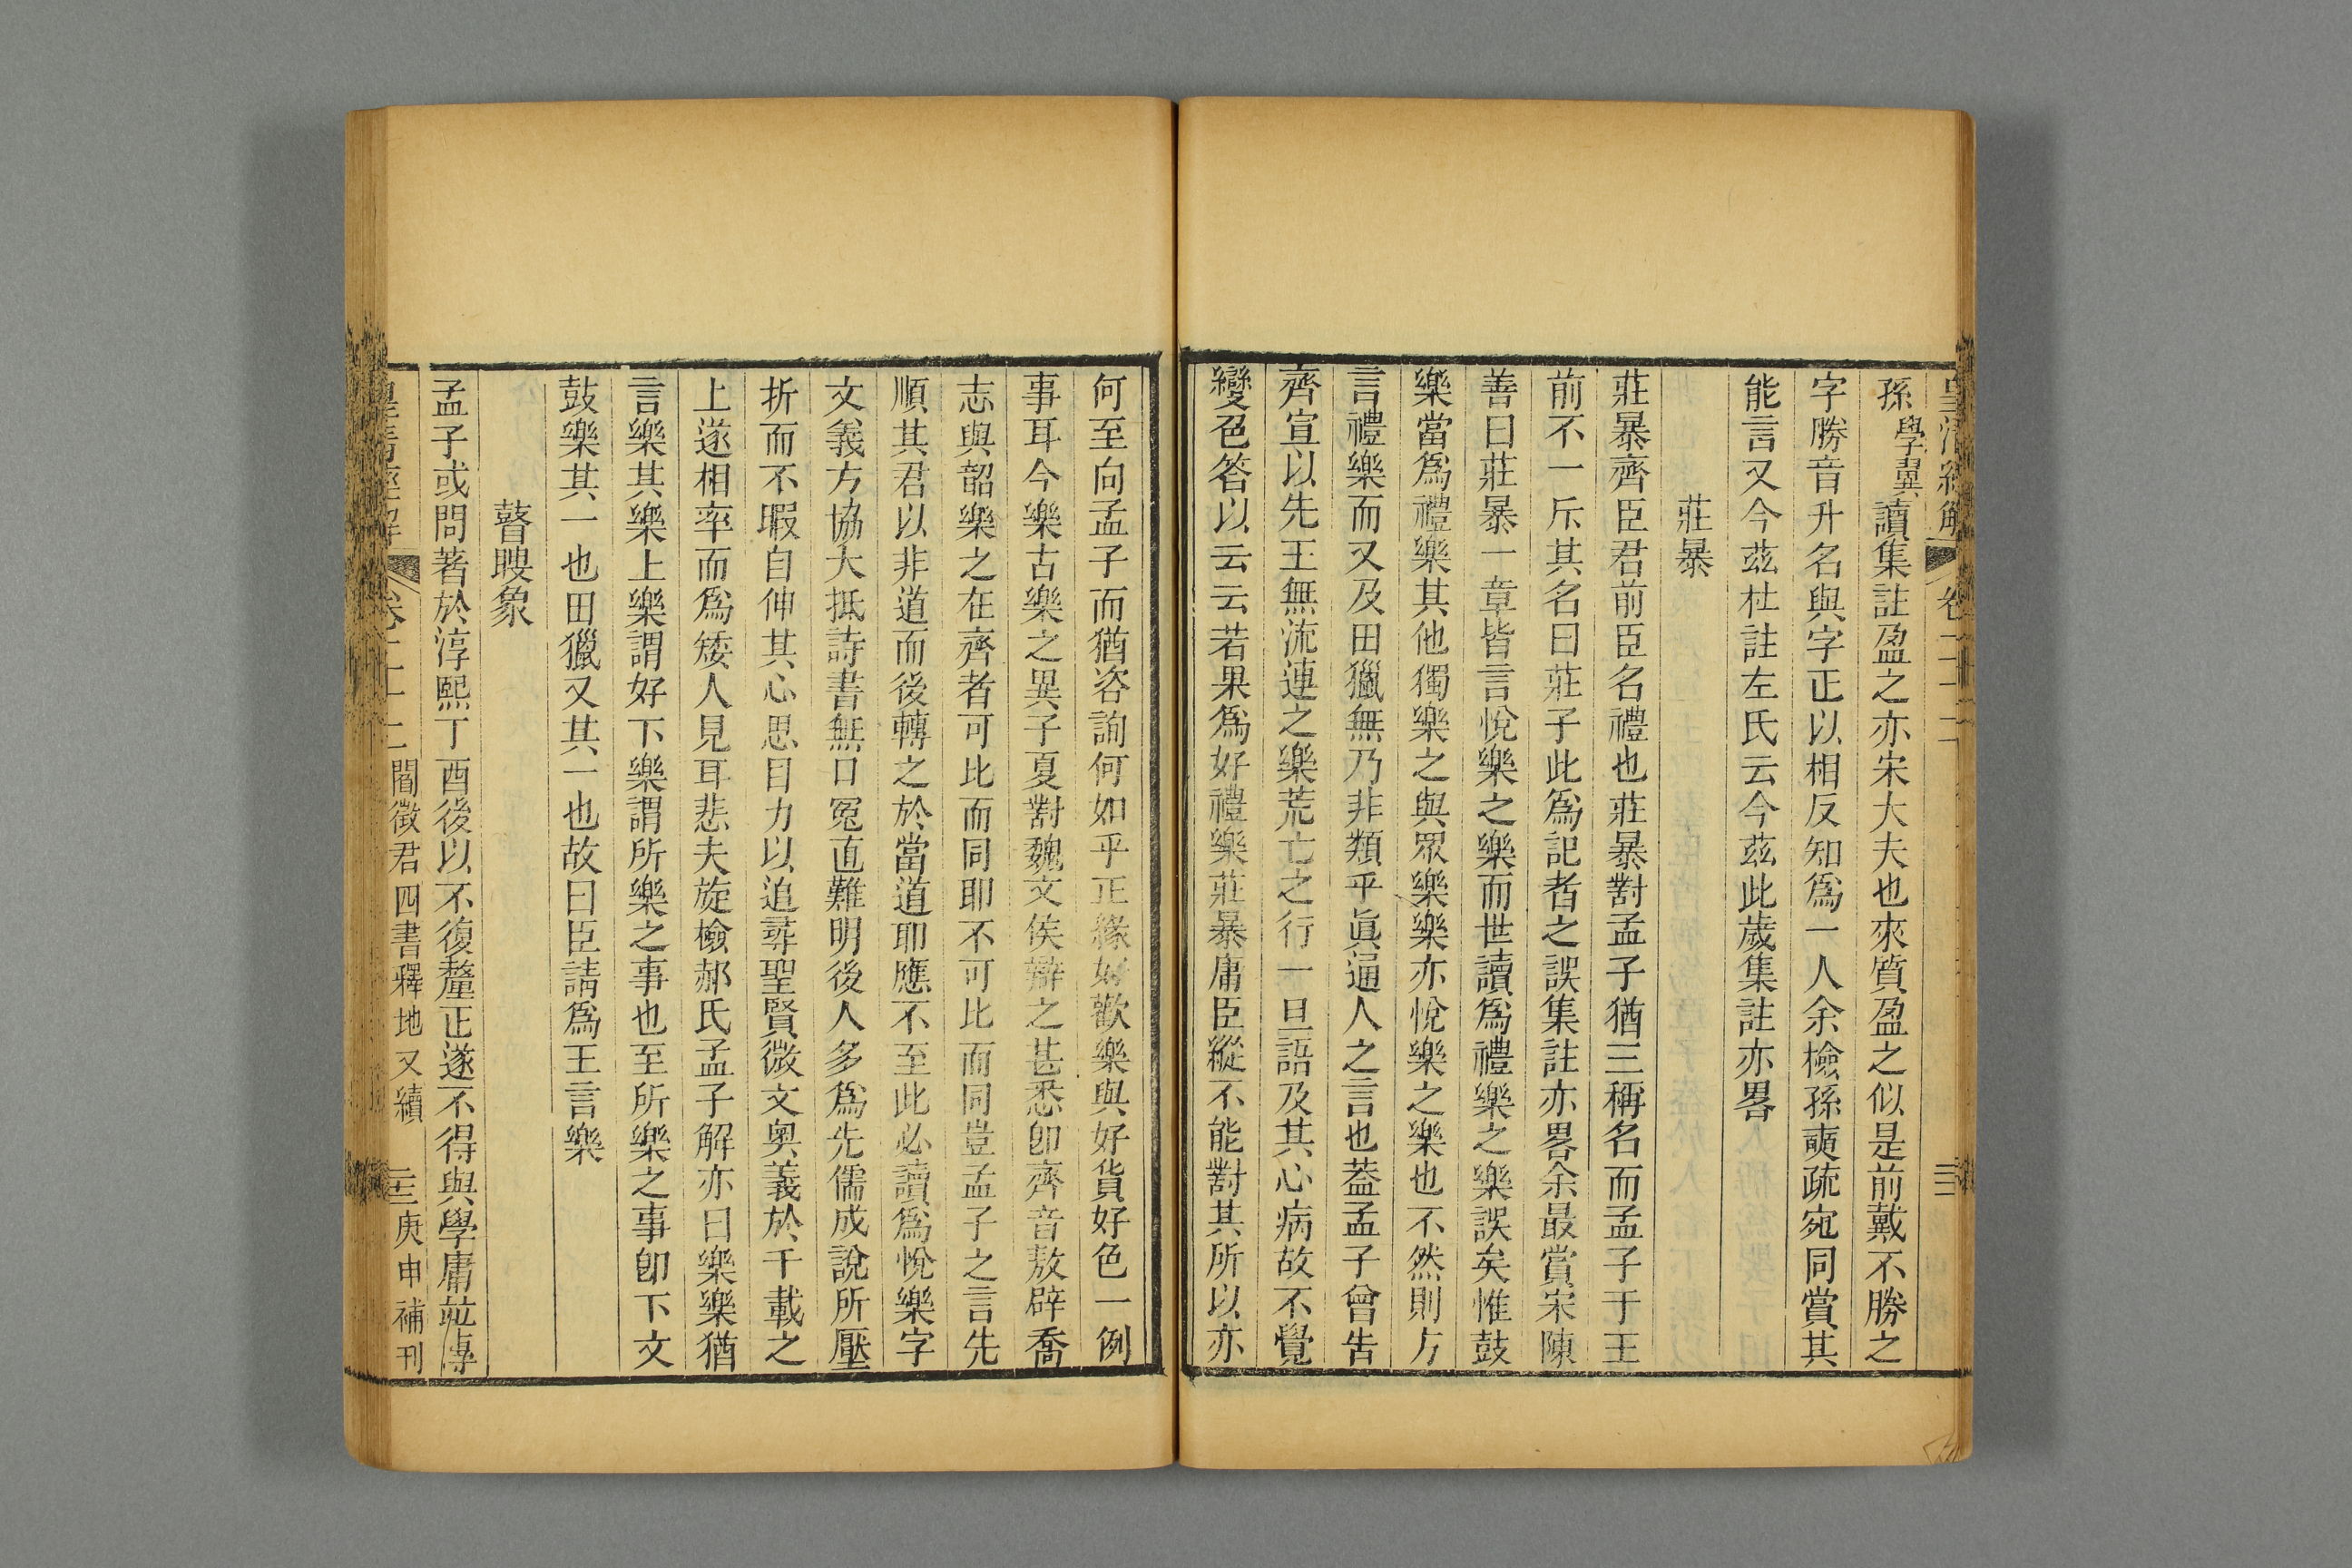 皇清經解 卷二十二
孫學翼讀集註盈之亦宋大夫也來質盈之似是前戴不勝之
字勝音升名與字正以相反知爲一人余檢孫奭疏宛同賞其
能言又今茲杜註左氏云今茲此歲集註亦畧
莊暴
莊暴齊臣君前臣名禮也莊暴對孟子猶三稱名而孟子于王
前不一斥其名曰莊子此爲記者之誤集註亦畧余最賞宋陳
善曰莊暴一章皆言悅樂之樂而世讀爲禮樂之樂誤矣惟鼓
樂當爲禮樂其他獨樂之與眾樂樂亦悅樂之樂也不然則方
言禮樂而又及田獵無乃非類乎眞通人之言也葢孟子曾告
齊宣以先王無流連之樂荒亡之行一旦語及其心病故不覺
變色答以云云若果爲好禮樂莊暴庸臣縱不能對其所以亦
何至向孟子而猶咨詢何如乎正緣好歡樂與好貨好色一例
事耳今樂古樂之異子夏對魏文侯辯之甚悉卽齊音敖辟喬
志與韶樂之在齊者可比而同耶不可比而同豈孟子之言先
順其君以非道而後轉之於當道耶應不至此必讀爲悅樂字
文義方協大抵詩書無口冤直難明後人多爲先儒成說所壓
折而不暇自伸其心思目力以追尋聖賢微文奥義於千載之
上遂相率而爲矮人見耳悲夫旋檢郝氏孟子解亦曰樂樂猶
言樂其樂上樂謂好下樂謂所樂之事也至所樂之事卽下文
鼓樂其一也田獵又其一也故曰臣請爲王言樂
瞽瞍象
孟子或問著於淳熙丁酉後以不復釐正遂不得與學庸竝專
皇清經解 卷二十二 閻徵君四書釋地又續 三 庚申補刊